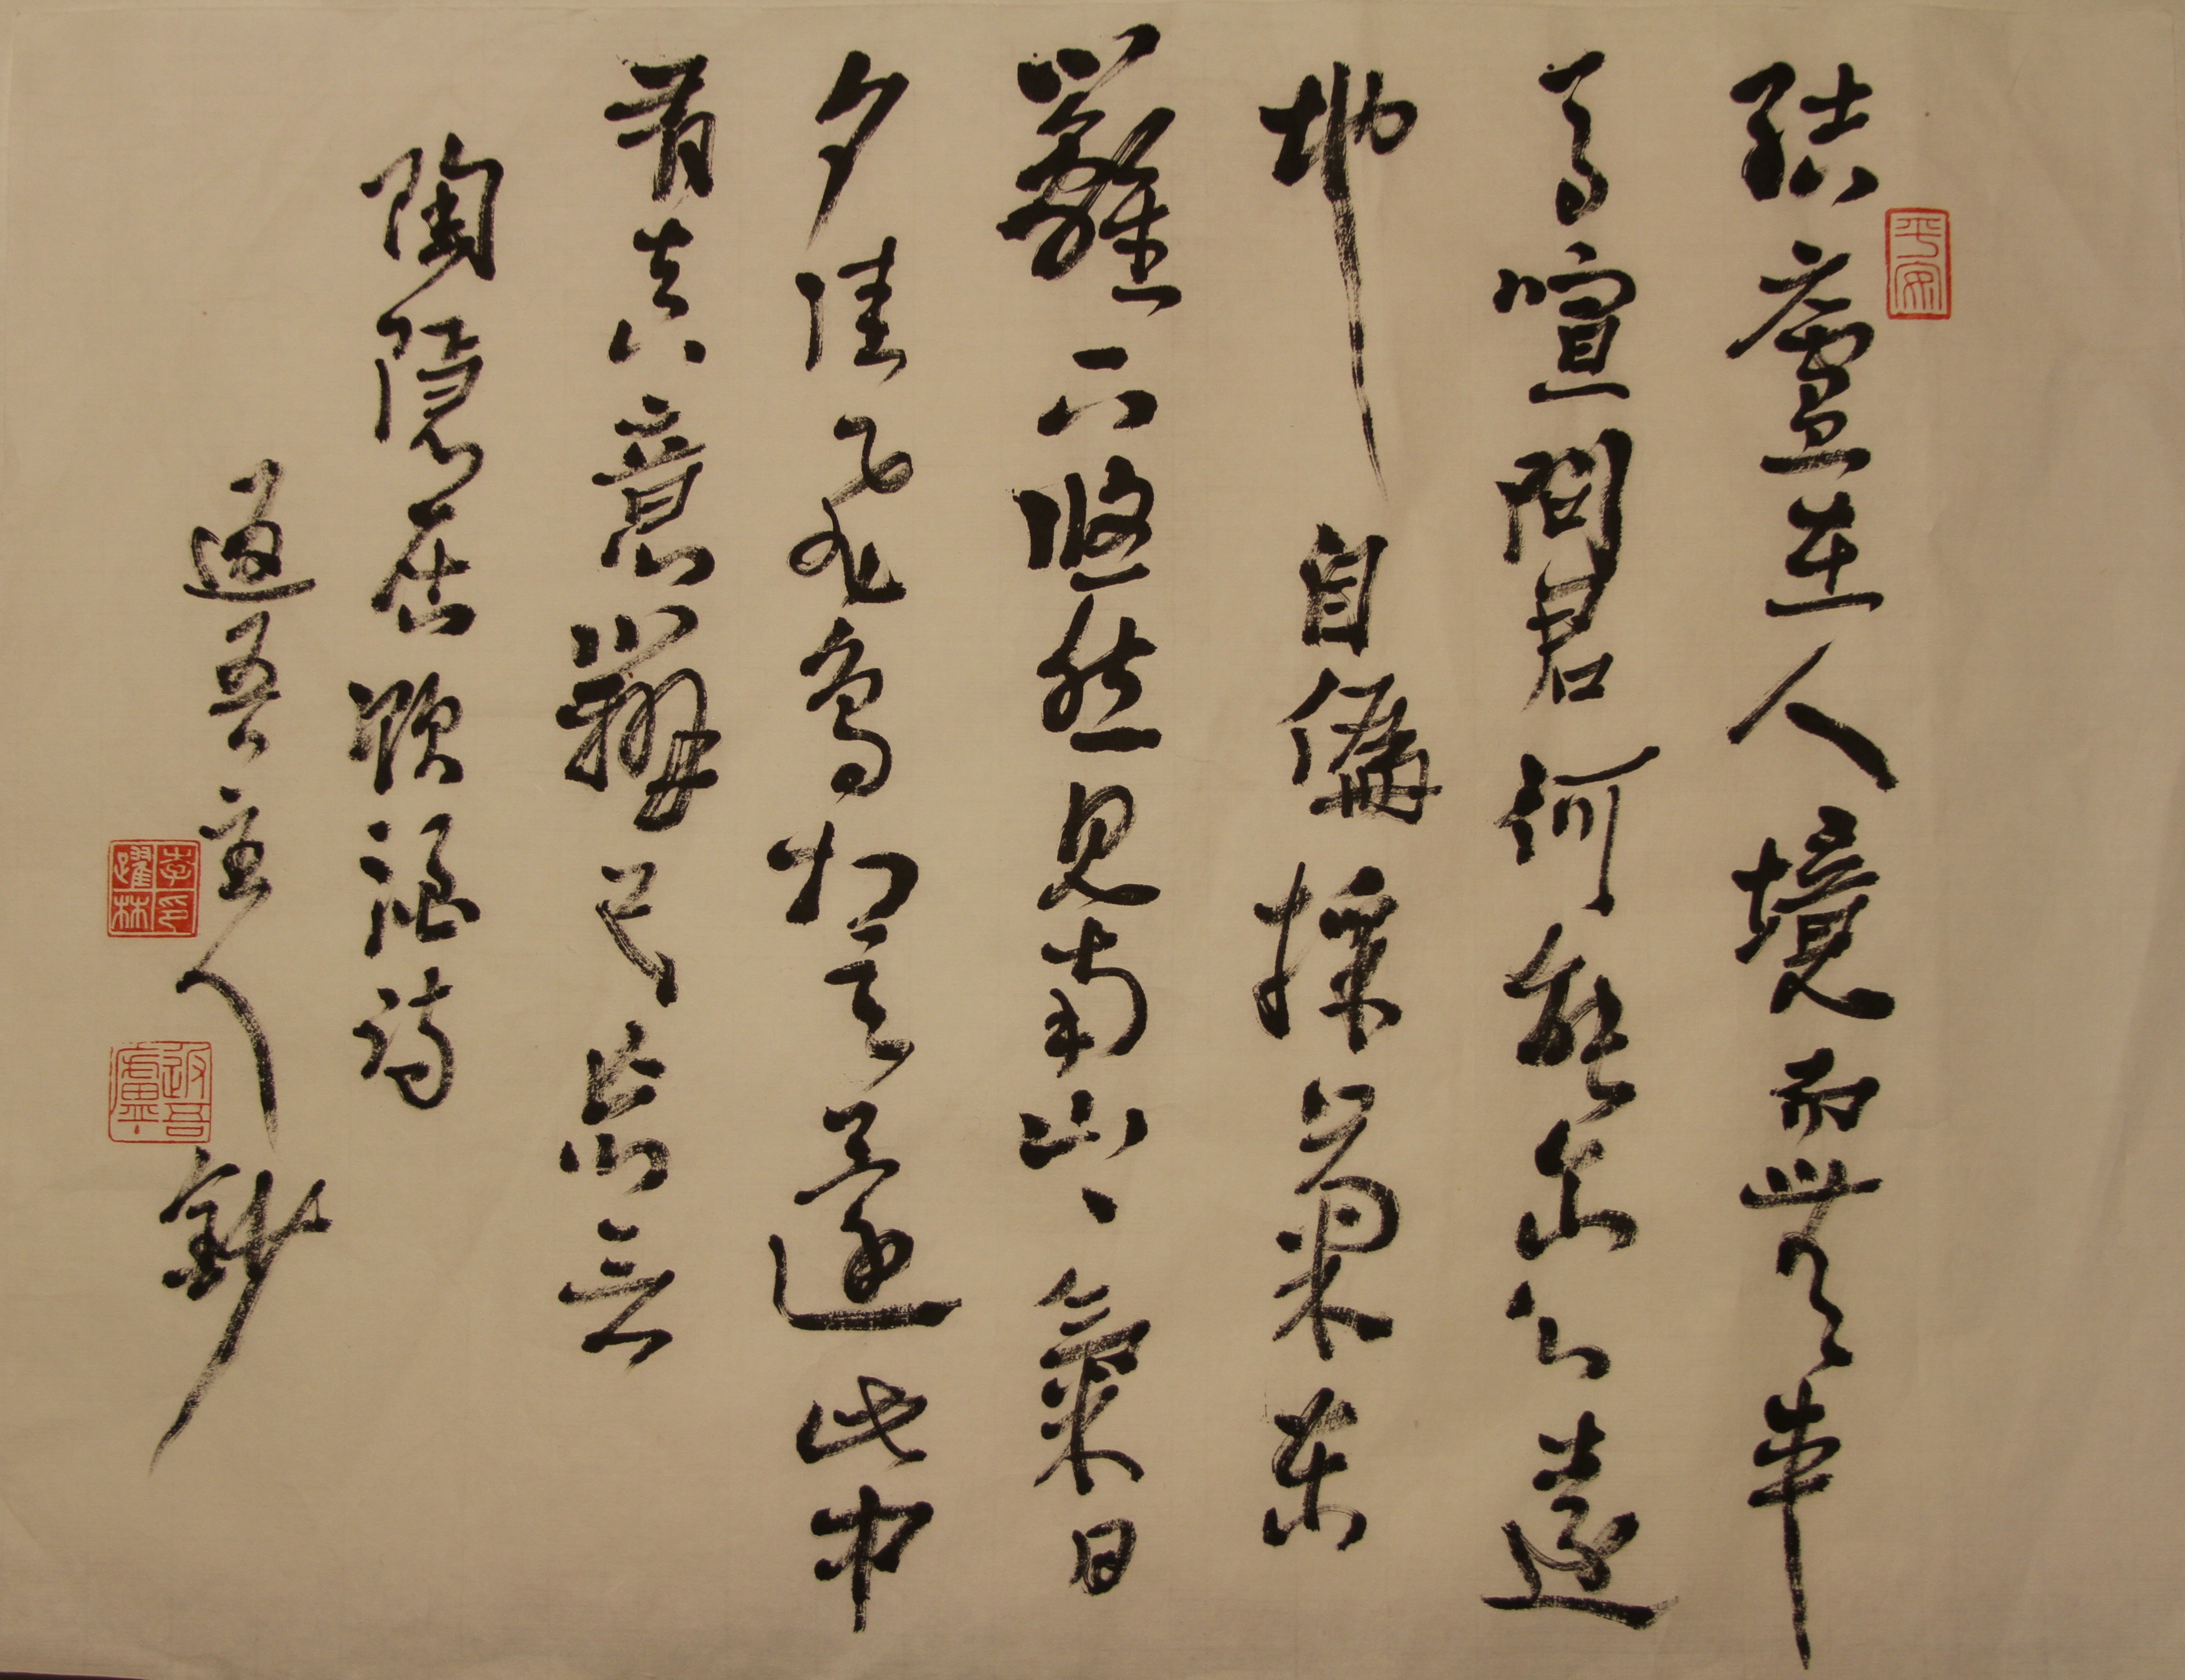 平安
結廬在人境而無車
馬喧問君何能尔心遠
地自偏採菊東
籬下悠然見南山、氣日
夕佳飛鳥相与還此中
有真意辨已忘言
陶隱居飲酒詩
吾主人鈔
李躍林印
吾廬